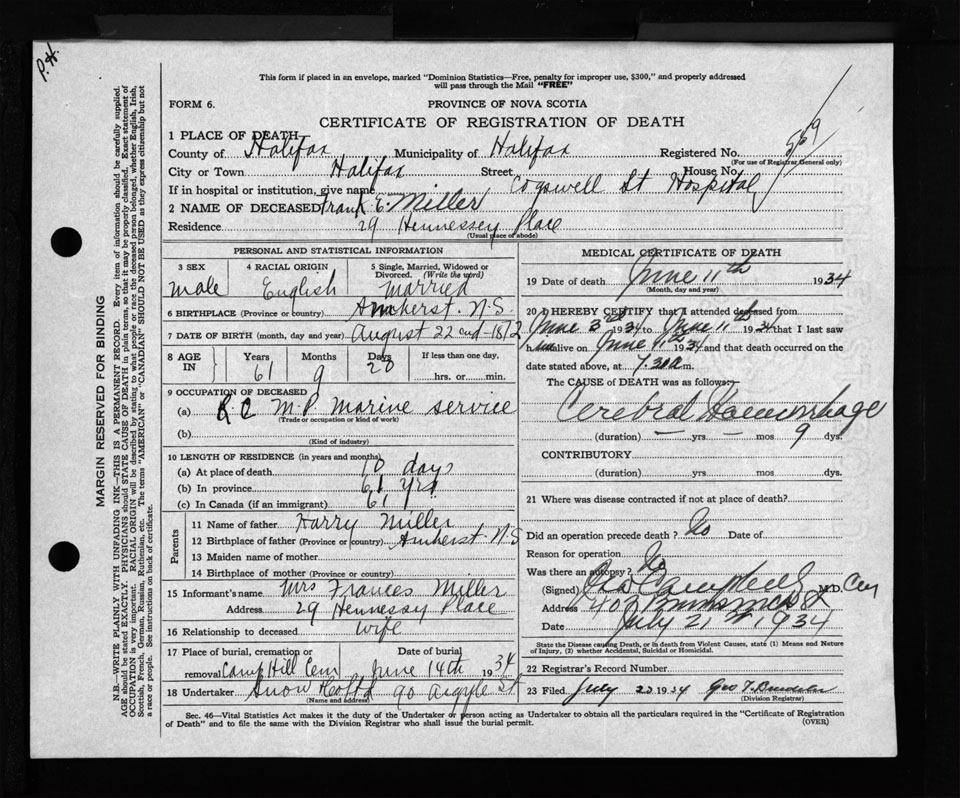 P.H.
This form if placed in an envelope, marked "Dominion Statistics—Free, penalty for improper use, $300," and properly addressed
will pass through the Mail "FREE"
FORM 6.
PROVINCE OF NOVA SCOTIA
CERTIFICATE OF REGISTRATION OF DEATH
1 PLACE OF DEATH
County of Halifax Municipality of Halifax Registered No. 559
(For use of Registrar General only)
City or Town Halifax Street House No.
If in hospital or institution, give name Cogswell St Hospital
2 NAME OF DECEASED Frank E. Miller
Residence 29 Hennessey Place
(Usual place of abode)
PERSONAL AND STATISTICAL INFORMATION
3 SEX 4 RACIAL ORIGIN 5 Single, Married, Widowed or Divorced. (Write the word)
male English Married
6 BIRTHPLACE (Province or country) Amherst. N.S.
7 DATE OF BIRTH (month, day and year) August 22nd 1872
8 AGE IN Years Months Days If less than one day,
61 9 20 hrs. or min.
9 OCCUPATION OF DECEASED
(a) R C M.P. Marine service
(Trade or occupation or kind of work)
(b)
(Kind of industry)
10 LENGTH OF RESIDENCE (in years and months)
(a) At place of death 10 days
(b) In province 61 yrs
(c) In Canada (if an immigrant) 61
Parents
11 Name of father Harry Miller
12 Birthplace of father (Province or country) Amherst. N.S
13 Maiden name of mother
14 Birthplace of mother (Province or country)
15 Informant's name Mrs Frances Miller
Address 29 Hennessy Place
16 Relationship to deceased wife
17 Place of burial, cremation or removal Date of burial
Camp Hill Cem June 14th 1934
18 Undertaker Snow & Co Ltd 90 Argyle St
(Name and address)
MEDICAL CERTIFICATE OF DEATH
19 Date of death June 11th 1934
(Month, day and year)
20 I HEREBY CERTIFY that I attended deceased from
June 3rd 1934 to June 11th 1934 that I last saw
him alive on June 11th 1934 and that death occurred on the
date stated above, at 7.30 a m.
The CAUSE of DEATH was as follows:
Cerebral Haemorrhage
(duration) — yrs. — mos 9 dys.
CONTRIBUTORY
(duration) yrs. mos. dys.
21 Where was disease contracted if not at place of death?
Did an operation precede death? No Date of
Reason for operation
Was there an autopsy? No
(Signed) Geo Campbell M.D.
Address 407
Date July 21st 1934
State the Disease causing Death, or in death from Violent Causes, state (1) Means and Nature
of Injury, (2) whether Accidental, Suicidal or Homicidal.
22 Registrar's Record Number
23 Filed July 23 1934 Geo T.
(Division Registrar)
Sec. 46—Vital Statistics Act makes it the duty of the Undertaker or person acting as Undertaker to obtain all the particulars required in the "Certificate of Registration
of Death" and to file the same with the Division Registrar who shall issue the burial permit.
(OVER)
MARGIN RESERVED FOR BINDING
N.B.—WRITE PLAINLY WITH UNFADING INK—THIS IS A PERMANENT RECORD. Every item of information should be carefully supplied.
AGE should be stated EXACTLY. PHYSICIANS should STATE CAUSE OF DEATH in plain terms, so that it may be properly classified. Exact statement of
OCCUPATION is very important. RACIAL ORIGIN will be described by stating to what people or race the deceased person belonged, whether English, Irish,
Scottish, French, German, Russian, Ruthenian, etc. The terms "AMERICAN" or "CANADIAN" SHOULD NOT BE USED as they express citizenship but not
a race or people. See instructions on back of certificate.